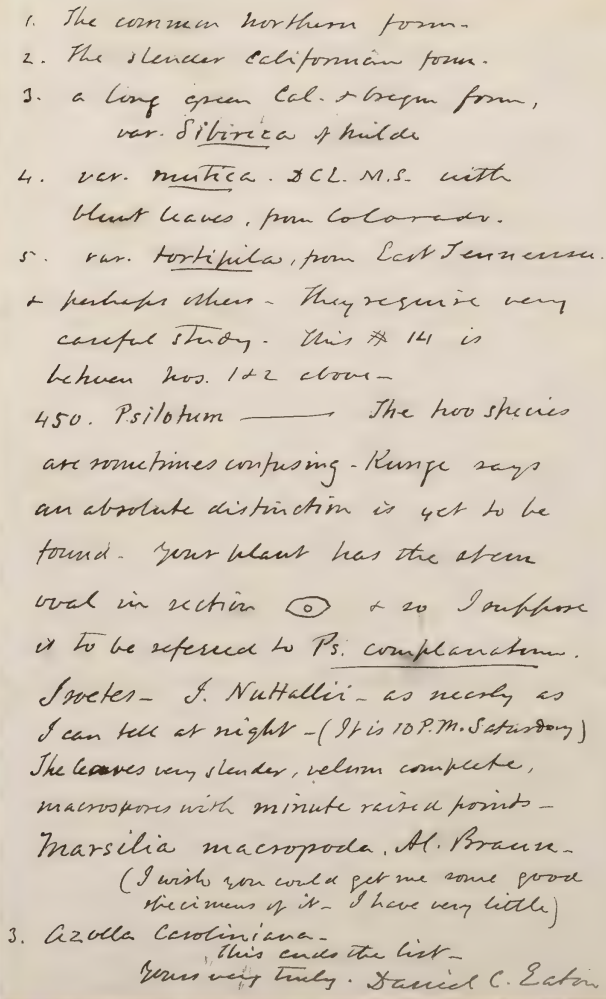 1. The common northern form -
2. The slender Californian form.
3. a long green Cal. & Oregon form,
var. Sibirica of Milde
4. var. mutica. DCE. M.S. with
blunt leaves, from Colorado.
5. var. tortipila, from East Tennessee.
& perhaps others - They require very
careful study. This # 14 is
between nos. 1 & 2 above -
450. Psilotum — The two species
are sometimes confusing - Kunze says
an absolute distinction is yet to be
found. Your plant has the stem
oval in section & so I suppose
is to be referred to Ps. complanatum.
Isoetes - I. Nuttallii - as nearly as
I can tell at night - (It is 10 P.M. Saturday)
The leaves very slender, velum complete,
macrospores with minute raised points -
Marsilia macropoda, Al. Braun -
(I wish you could get me some good
specimens of it - I have very little)
3. Azolla Caroliniana -
This ends the list -
Yours very truly. Daniel C. Eaton